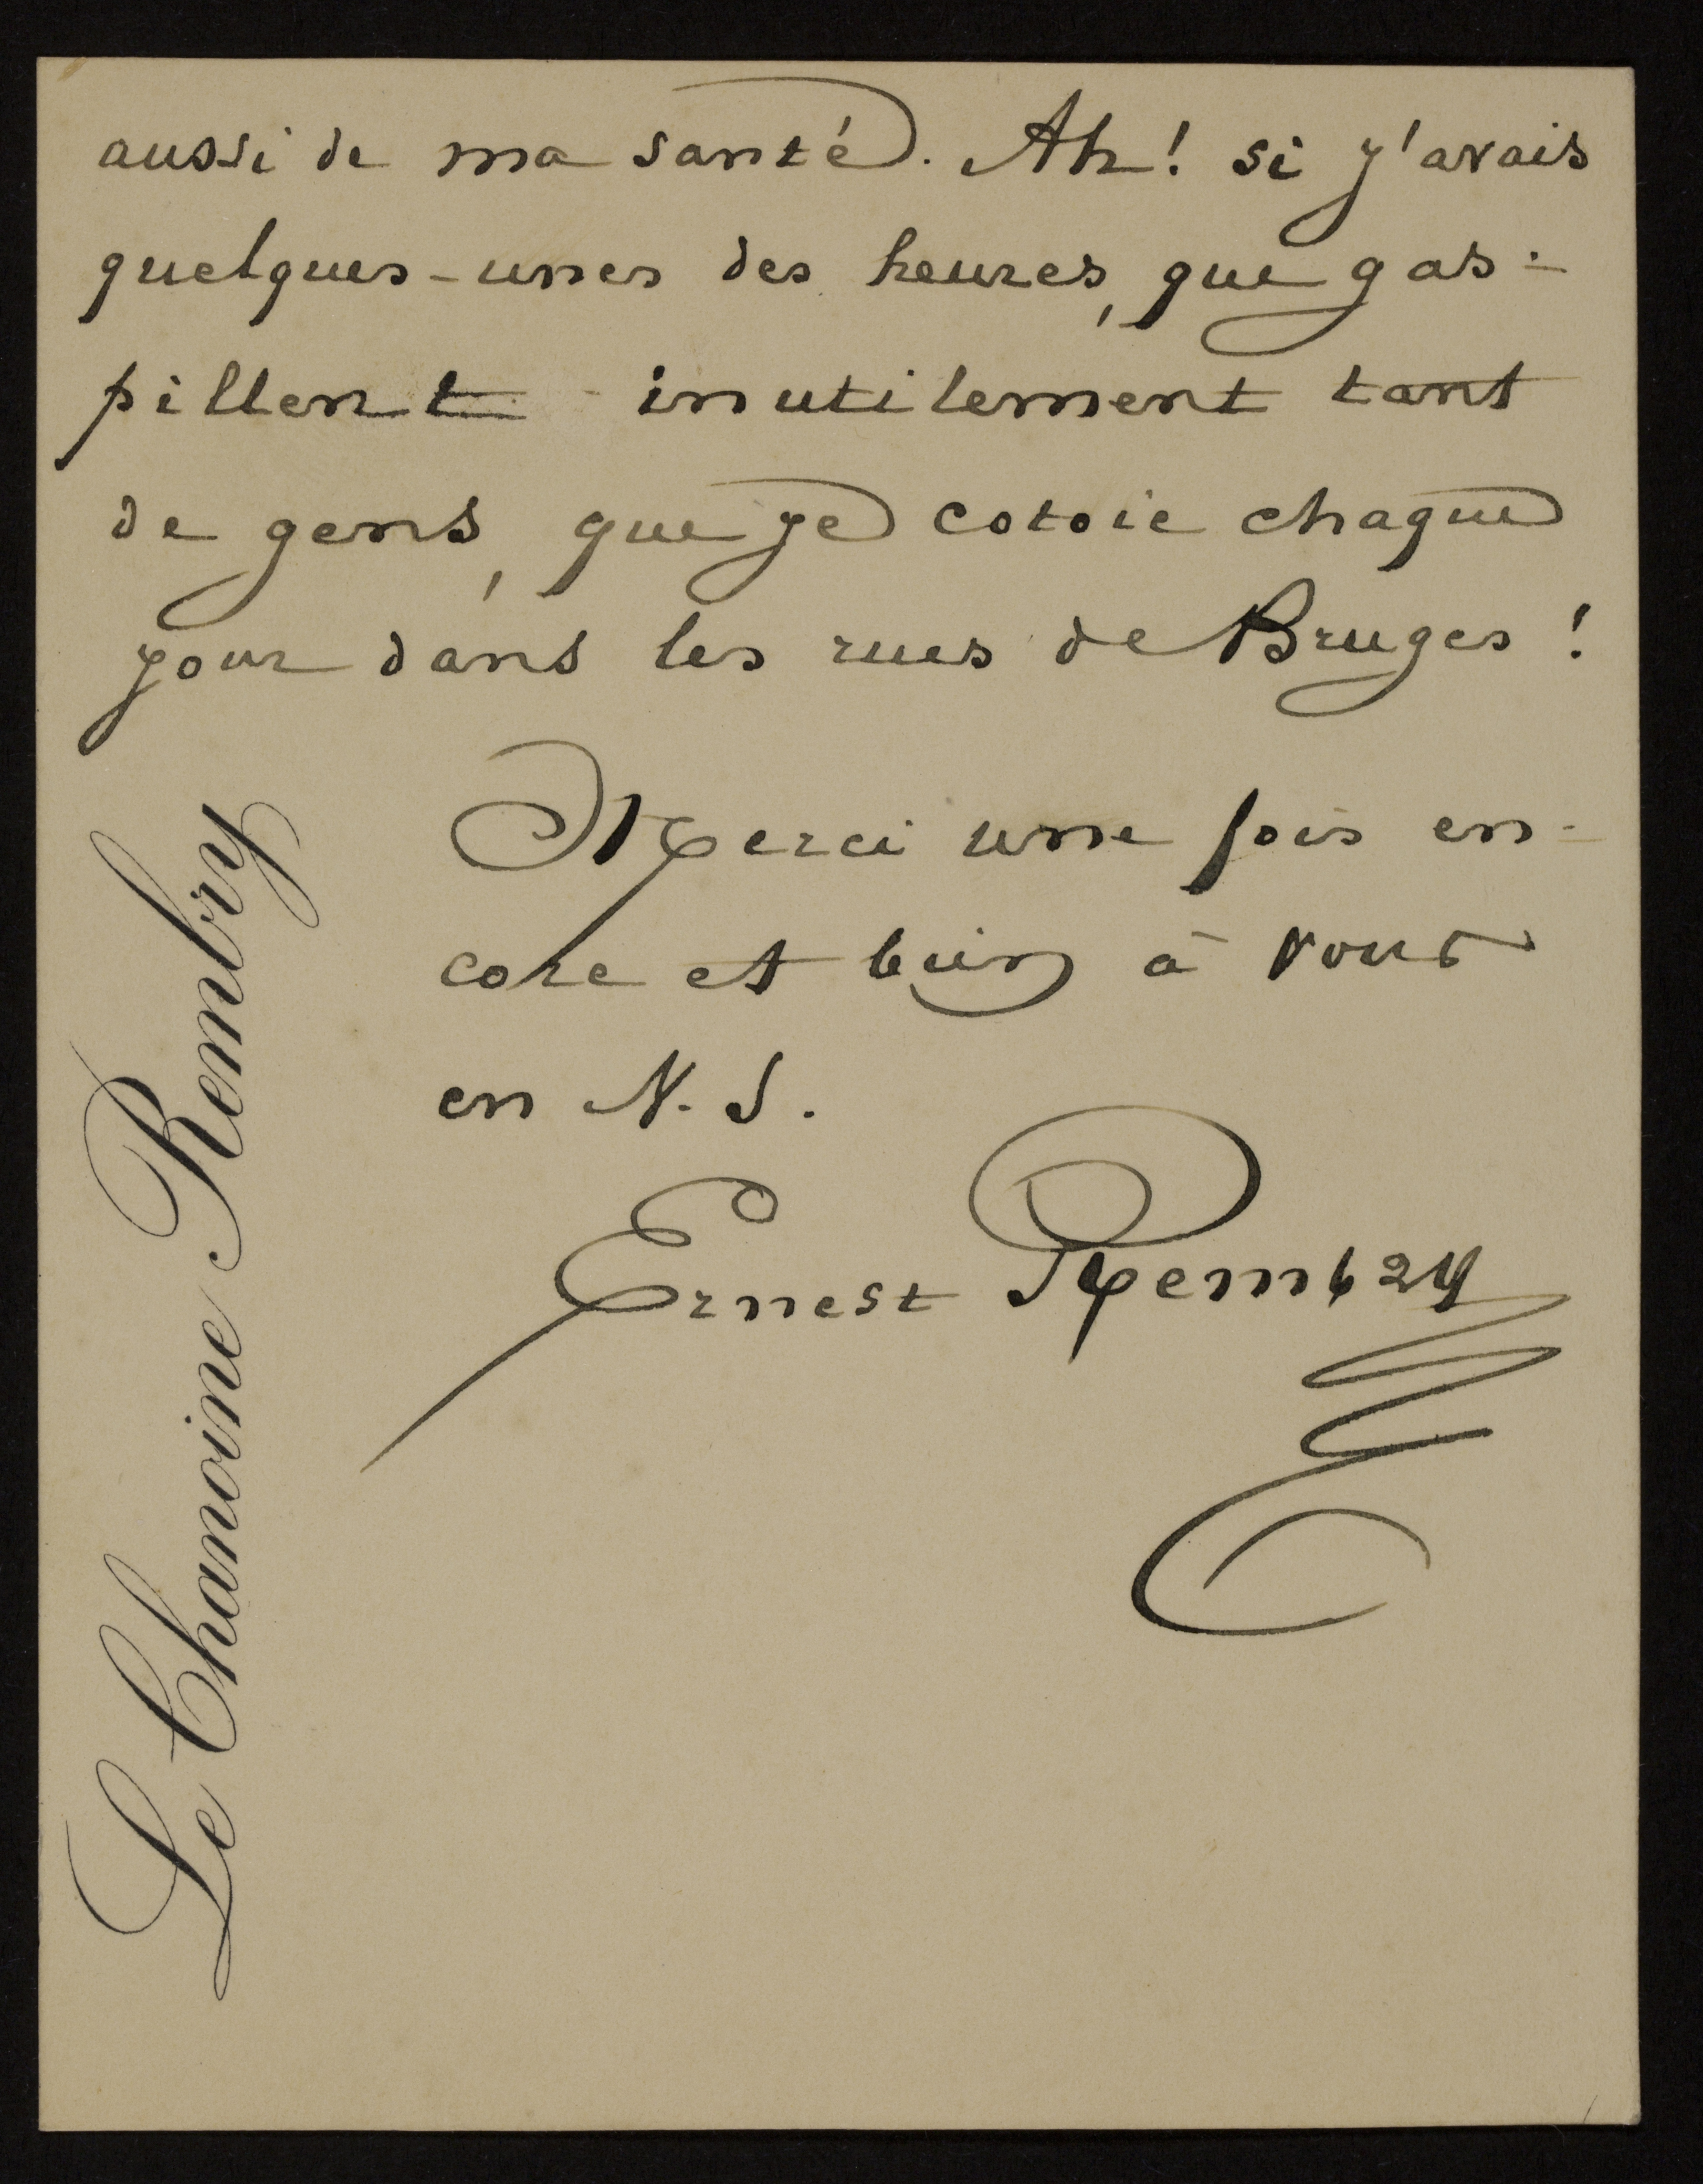 aussi de ma santé. Ah! si j'avais
quelques-unes des heures, que gas-
pillent inutilement tant
de gens, que je cotoie chaque
jour dans les rues de Bruges!
Merci une fois en-
core et bien à vous
en N. S.
Ernest Rembry
Le Chanoine Rembry